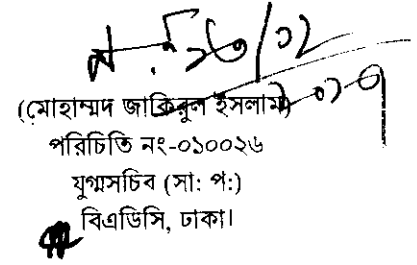 (মোহাম্মদ জাকিরুল ইসলাম)
পরিচিতি নং-০১০০২৬
যুগ্মসচিব (সা: প:)
বিএডিসি, ঢাকা।